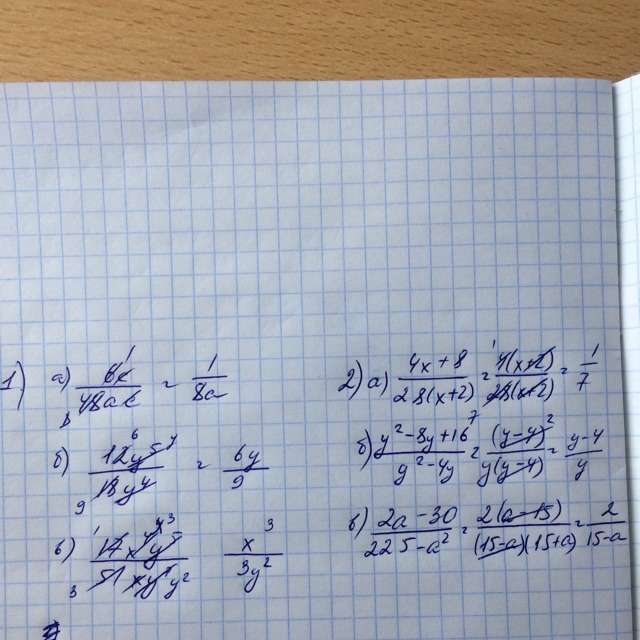 1) а) 6c/48ac = 1/8a
б) 12y⁵/18y⁴ = 6y/9
в) 17x⁴y⁵/51xy⁷ x³/3y²
2) а) 4x+8/28(x+2) = 4(x+2)/28(x+2) = 1/7
б) y²-8y+16/y²-4y = (y-4)²/y(y-4) = y-4/y
в) 2a-30/225-a² = 2(a-15)/(15-a)(15+a) = 2/15-a